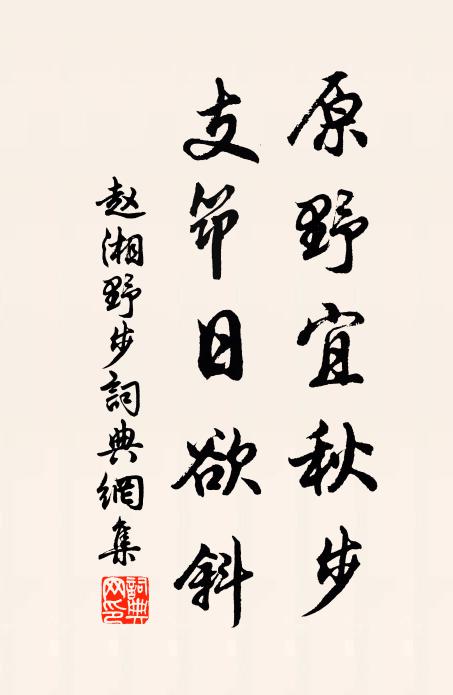 原野宜秋步
支筇日欲斜
赵湘野步詞典網集
詞典网印